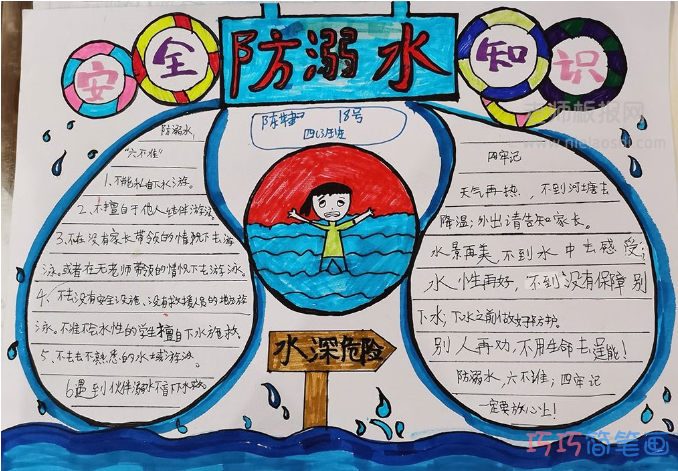 安全防溺水知识
18号
防溺水
"六不准"
1、不能私自下水游泳。
2、不擅自于他人结伴游泳。
3、不在没有家长带领的情况下去游
泳。或者在无老师带领的情况下去游泳。
4、不去没有安全设施、没有救援人员的地方游
泳。不准不会水性的学生擅自下水施救。
5、不去去不熟悉的水域游泳。
6遇到伙伴溺水不盲下水救
四牢记
天气再热,不到河塘去
降温;外出请告知家长。
水景再美,不到水中去感受;
水性再好,不到没有保障别
下水,下水之前做好防护。
别人再劝,不用生命去逞能!
防溺水,六不准;四牢记
一定要放心上!
水深危险
老师板报网
巧巧简笔画